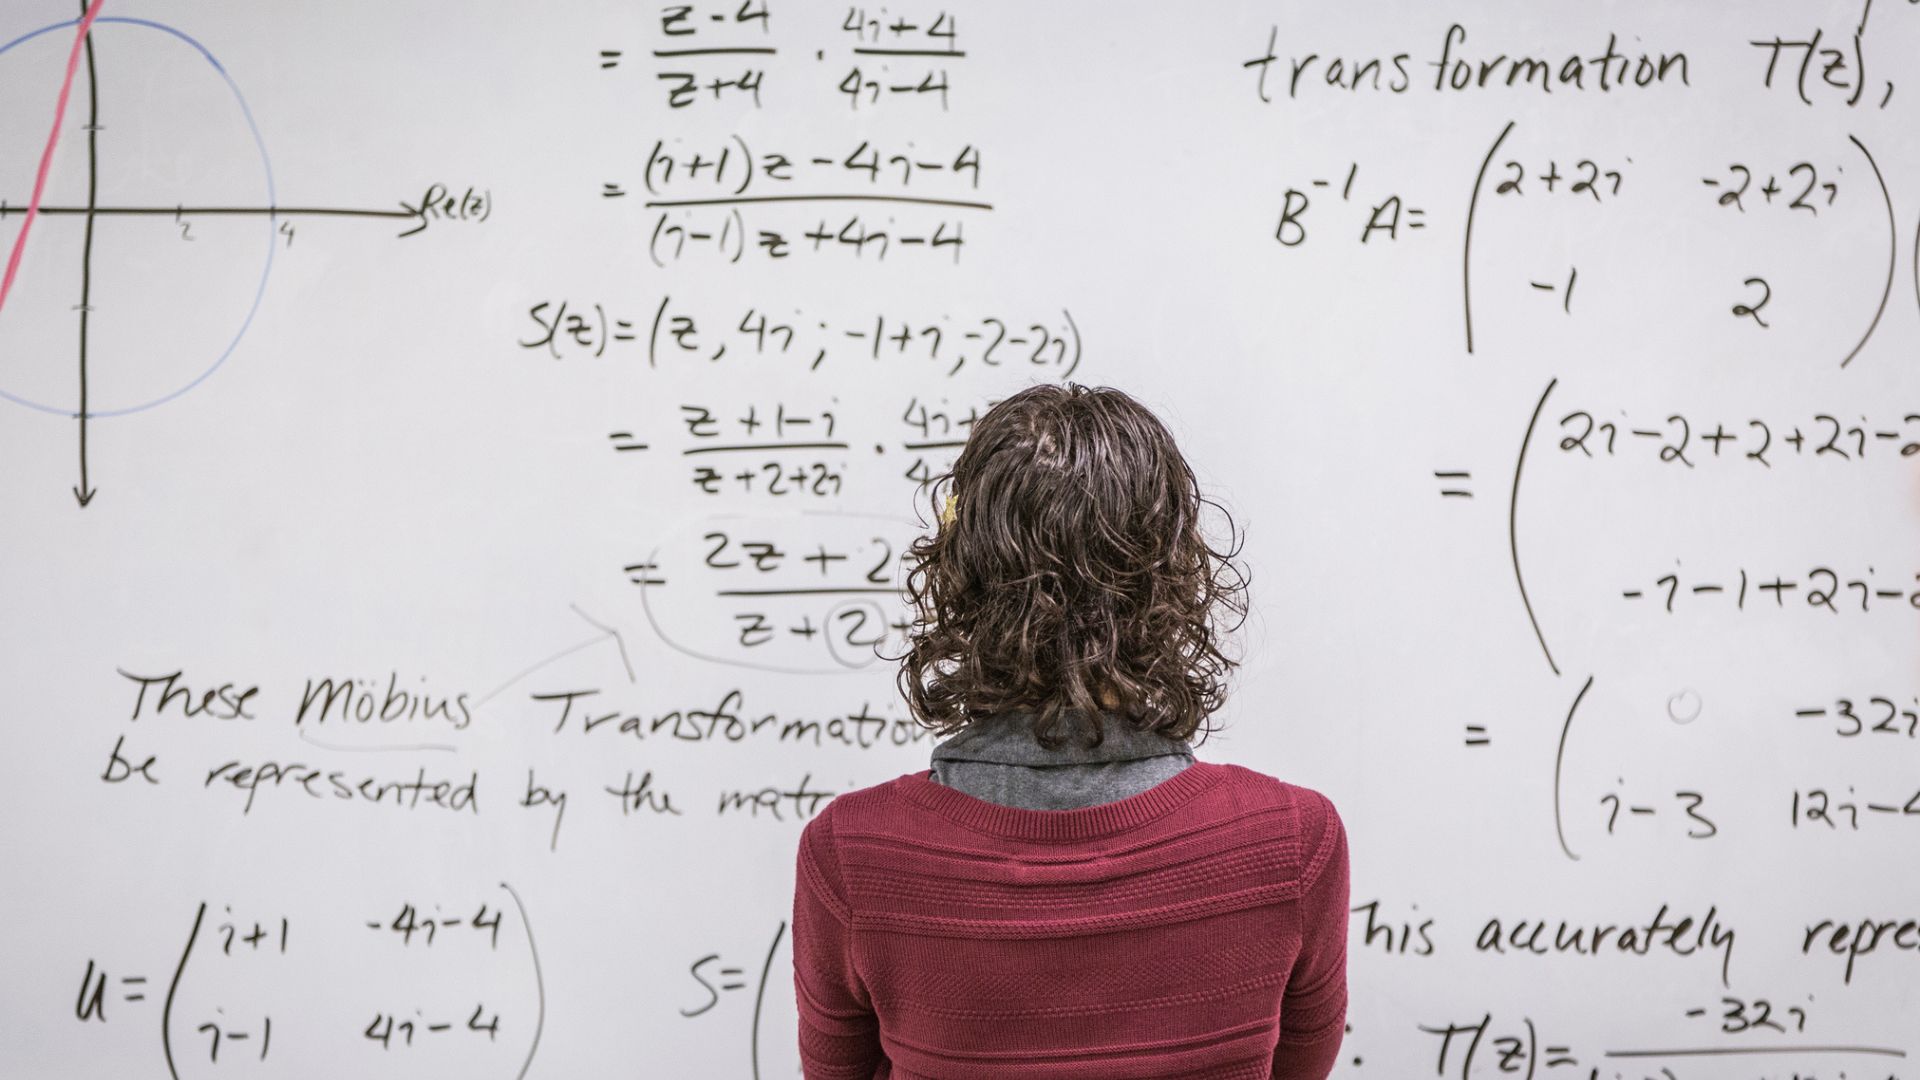 Re(z)
2 4
= z-4/z+4 · 4i+4/4i-4
= (i+1)z-4i-4/(i-1)z+4i-4
S(z)=(z, 4i; -1+i, -2-2i)
= z+1-i/z+2+2i · 4i+
= 2z+2/z+2+
These Möbius Transformation
be represented by the
U= (i+1 -4i-4
i-1 4i-4)
S= (
transformation T(z),
B^-1 A= (2+2i -2+2i
-1 2)
= (2i-2+2+2i-2
-i-1+2i-2
= (0 -32i
i-3 12i-4
This accurately
T(z)= -32i